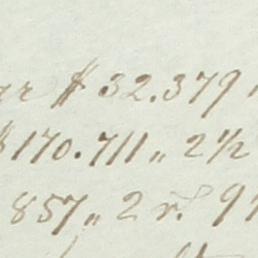 $ 32.379
$170.711,, 2½
857,, 2 rs. 9